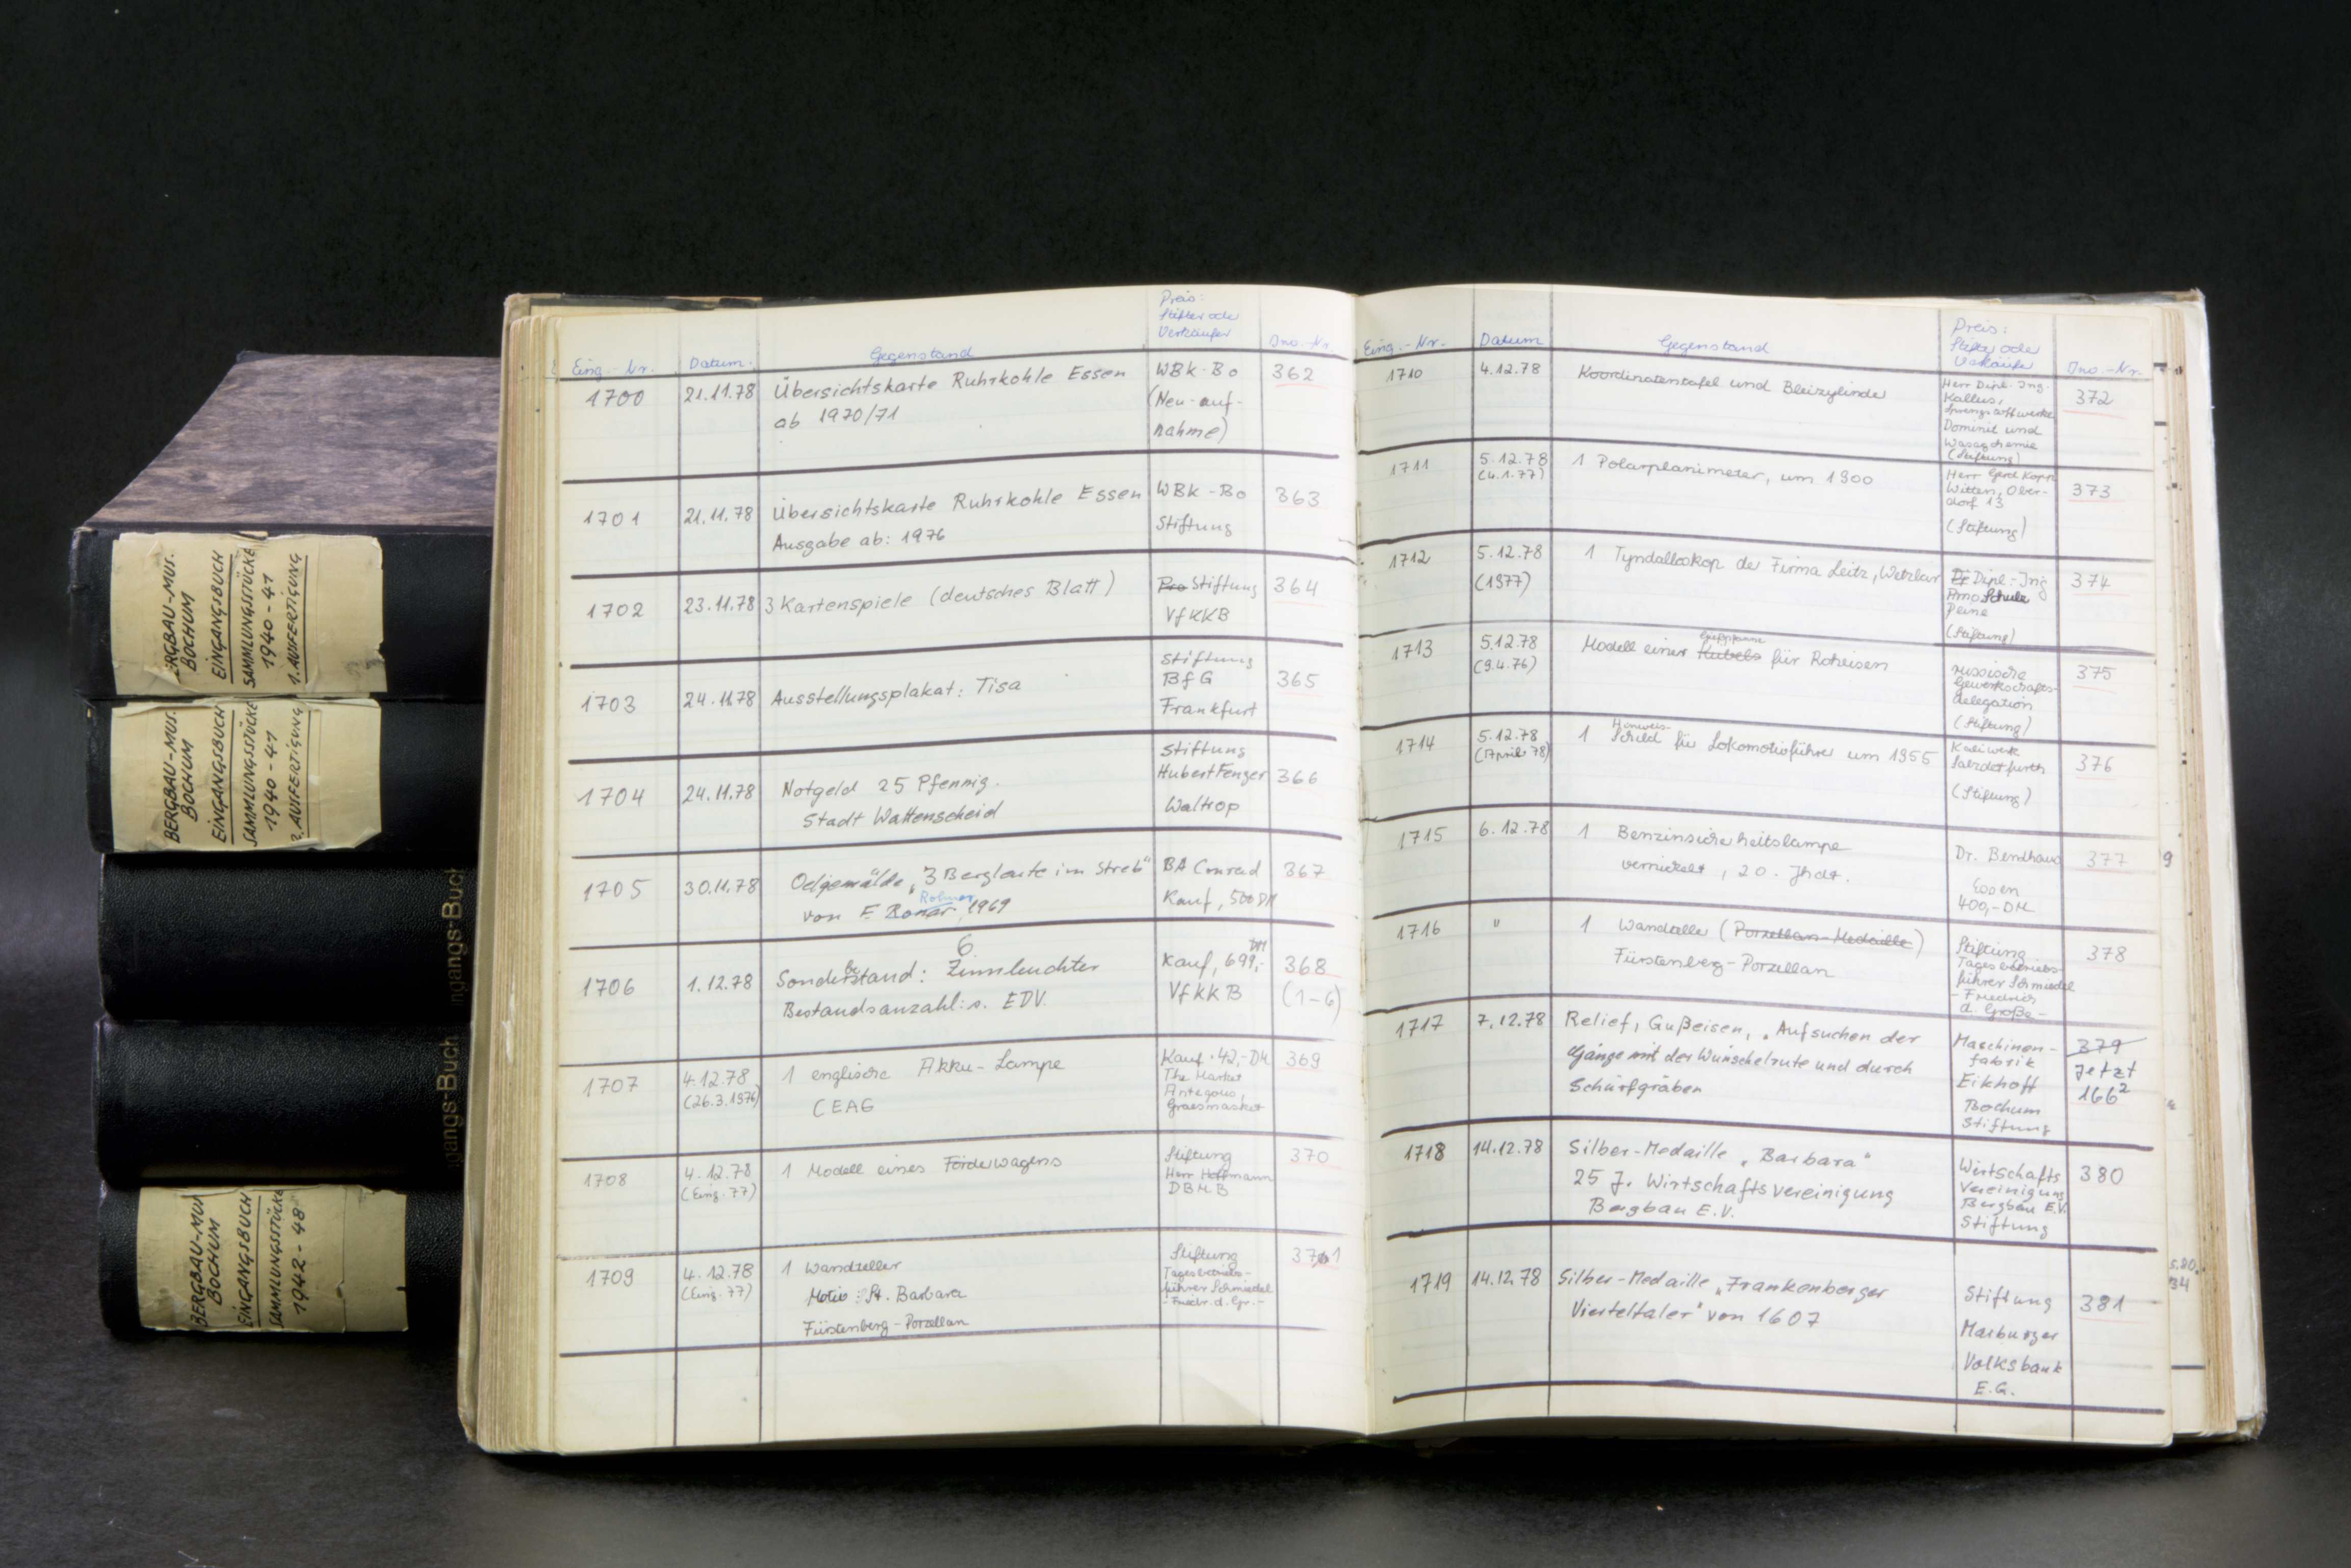 BERGBAU-MUS.
BOCHUM
EINGANGSBUCH
SAMMLUNGSSTÜCKE
1940-41
1. AUSFERTIGUNG
BERGBAU-MUS.
BOCHUM
EINGANGSBUCH
SAMMLUNGSSTÜCKE
1940-41
2. AUSFERTIGUNG
ngangs-Buch
ngangs-Buch
BERGBAU-MUS
BOCHUM
EINGANGSBUCH
SAMMLUNGSSTÜCKE
1942-48
Eing.-Nr. Datum. Gegenstand Preis: Stifter oder Verkäufer Inv.-Nr.
1700 21.11.78 Übersichtskarte Ruhrkohle Essen WBK-Bo 362
ab 1970/71 (Neu-auf-
nahme)
1701 21.11.78 Übersichtskarte Ruhrkohle Essen WBK-Bo 363
Ausgabe ab: 1976 Stiftung
1702 23.11.78 3 Kartenspiele (deutsches Blatt) Stiftung 364
VfKKB
1703 24.11.78 Ausstellungsplakat: Tisa Stiftung 365
BfG
Frankfurt
1704 24.11.78 Notgeld 25 Pfennig. Stiftung 366
Stadt Wattenscheid Hubert Fenger
Waltrop
1705 30.11.78 Oelgemälde „3 Bergleute im Streb" BA Conrad 367
von F. Rohar, 1969 Kauf, 500 DM
6
1706 1.12.78 Sonderbestand: Zinnleuchter Kauf, 699,- DM 368
Bestandsanzahl: s. EDV. VfKKB (1-6)
1707 4.12.78 1 englische Akku-Lampe Kauf 42,-DM 369
(26.3.1976) CEAG The Market
1708 4.12.78 1 Modell eines Förderwagens Stiftung 370
(Eing. 77) Herr Hoffmann
DBMB
1709 4.12.78 1 Wandteller Stiftung 371
(Eing. 77) Motiv: St. Barbara Tagesbetriebs-
Fürstenberg-Porzellan führer Schmiedel
- Friedr. d. Gr. -
Eing.-Nr. Datum Gegenstand Preis: Stifter oder Verkäufer Inv.-Nr.
1710 4.12.78 Koordinatentafel und Bleizylinder Herr Dipl.-Ing. 372
Kallus,
Sprengstoffwerke
Dominit und
Wasagchemie
(Stiftung)
1711 5.12.78 1 Polarplanimeter, um 1900 Herr Gerd Kopp 373
(4.1.77) Witten, Ober-
dorf 13
(Stiftung)
1712 5.12.78 1 Tyndalloskop der Firma Leitz, Wetzlar Dipl.-Ing 374
(1977) Arno Schulz
Peine
(Stiftung)
Gießpfanne
1713 5.12.78 Modell einer Kübels für Roheisen russische 375
(9.4.76) Gewerkschafts-
delegation
(Stiftung)
Hinweis-
1714 5.12.78 1 Schild für Lokomotivführer um 1955 Kaliwerk 376
(April 78) Salzdetfurth
(Stiftung)
1715 6.12.78 1 Benzinsicherheitslampe Dr. Benthaus 377
vernickelt, 20. Jhdt. Essen
400,-DM
1716 " 1 Wandteller (Porzellan-Medaille) Stiftung 378
Fürstenberg-Porzellan Tagesbetriebs-
führer Schmiedel
- Friedrich
d. Große -
1717 7.12.78 Relief, Gußeisen, „Aufsuchen der Maschinen- 379
Gänge mit der Wünschelrute und durch fabrik jetzt
Schürfgräben Eikhoff 1662
Bochum
Stiftung
1718 14.12.78 Silber-Medaille „Barbara" Wirtschafts 380
25 J. Wirtschaftsvereinigung Vereinigung
Bergbau E.V. Bergbau E.V.
Stiftung
1719 14.12.78 Silber-Medaille „Frankenberger Stiftung 381
Vierteltaler" von 1607 Marburger
Volksbank
E.G.